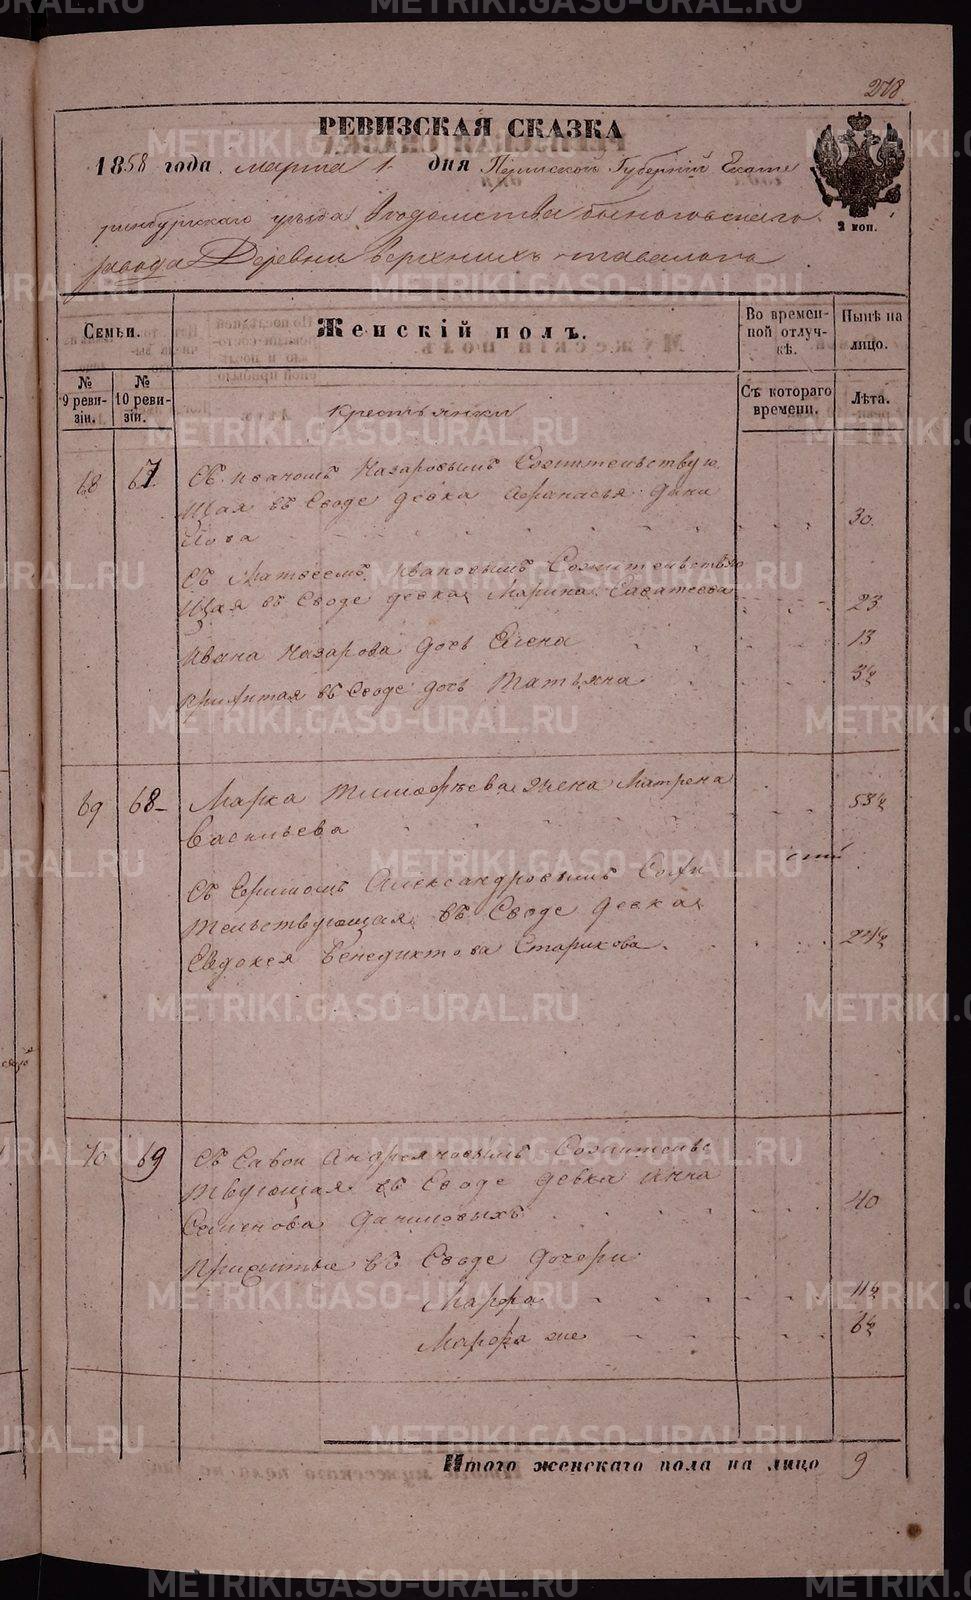 278
РЕВИЗСКАЯ СКАЗКА
1858 года марта 1 дня Пермской Губерніи Екате
ринбургскаго уѣзда Ведомства
завода Деревни Верхнихъ
2 коп.
Семьи.
Женскій полъ.
Во времен-
ной отлуч-
кѣ.
Нынѣ на
лицо.
№
9 реви-
зіи.
№
10 реви-
зіи.
Съ котораго
времени.
Лѣта.
Крестьянки
68 67 Съ Иваномъ Назаровымъ Сожительствую
щая въ Своде девка Афанасья
30
Съ Матвеемъ Ивановымъ Сожительствую
щая въ Своде девка Марина Саватеева 23
Ивана Назарова дочь Елена 13
Прижитая въ Своде дочь Татьяна 3½
69 68 Марка Тимофѣева жена Матрена 53½
Васильева
Съ Ефимомъ Александровымъ Сожи
тельствующая въ Своде девка
Евдокея Венедиктова Старикова 24½
70 69 Съ Савой Андреяновымъ Сожительс
твующая въ Своде девка Анна
Семенова Даниловыхъ 40
Прижитые въ Своде дочери
Марфа 11½
Марфа же 6½
Итого женскаго пола на лицо 9
METRIKI.GASO-URAL.RU